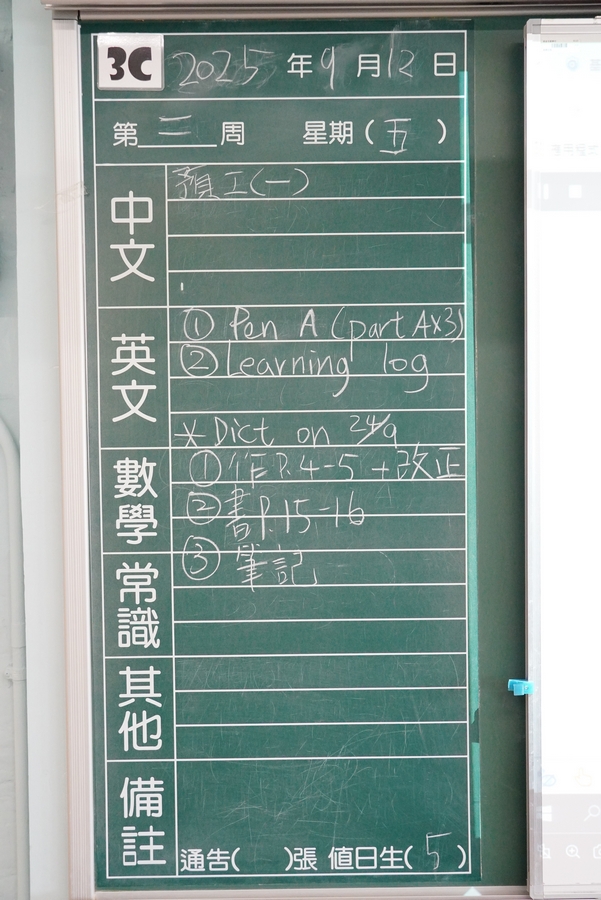 3C 2025年9月12日
第二周 星期(五)
中文 預工(一)
英文 ① Pen A (part A×3)
② Learning log
* Dict on 24/9
數學 ① 作P.4-5 + 改正
② 書P.15-16
③ 筆記
常識
其他
備註
通告( )張 值日生(5)